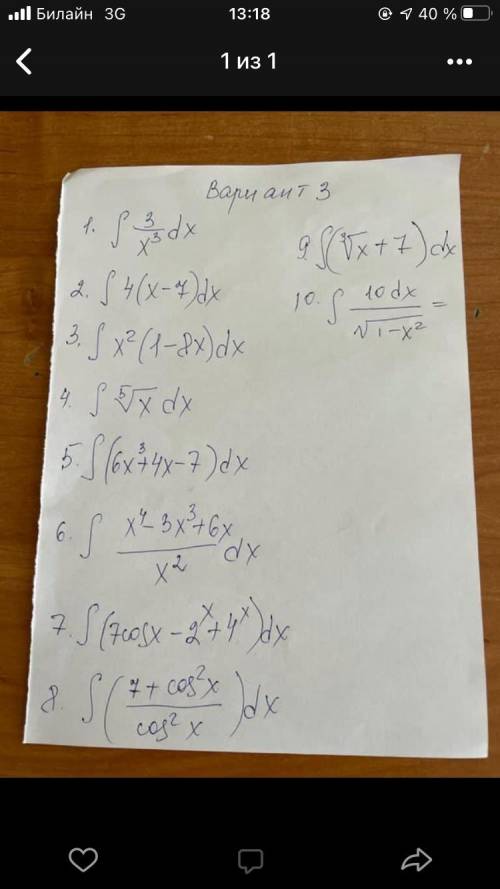 Билайн 3G 13:18 40 %
1 из 1
Вариант 3
1. ∫ 3/x³ dx
2. ∫ 4(x-7)dx
3. ∫ x²(1-8x)dx
4. ∫ ⁵√x dx
5. ∫(6x³+4x-7)dx
6. ∫ (x⁴-3x³+6x)/x² dx
7. ∫(7cosx-2ˣ+4ˣ)dx
8. ∫((7+cos²x)/(cos²x))dx
9 ∫(³√x+7)dx
10. ∫ 10dx/√(1-x²) =